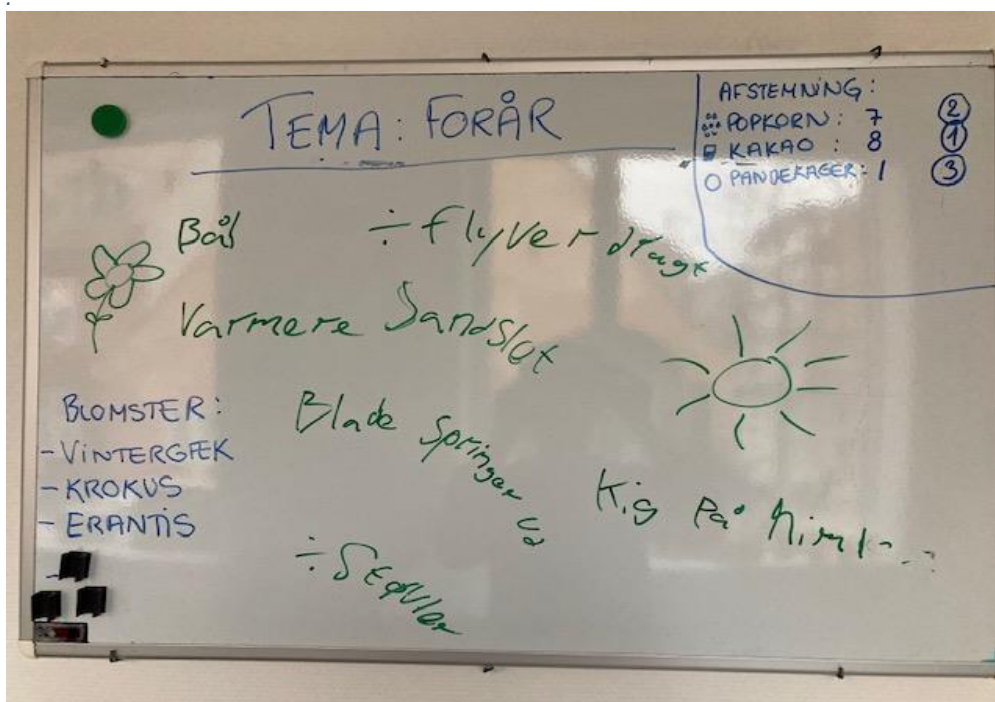 TEMA: FORÅR
AFSTEMNING:
POPKORN: 7 2
KAKAO: 8 1
PANDEKAGER: 1 3
Bål
÷ flyverdragt
Varmere Sandslot
BLOMSTER:
- VINTERGÆK
- KROKUS
- ERANTIS
Blade springer ud
Kig på
÷ Støvler